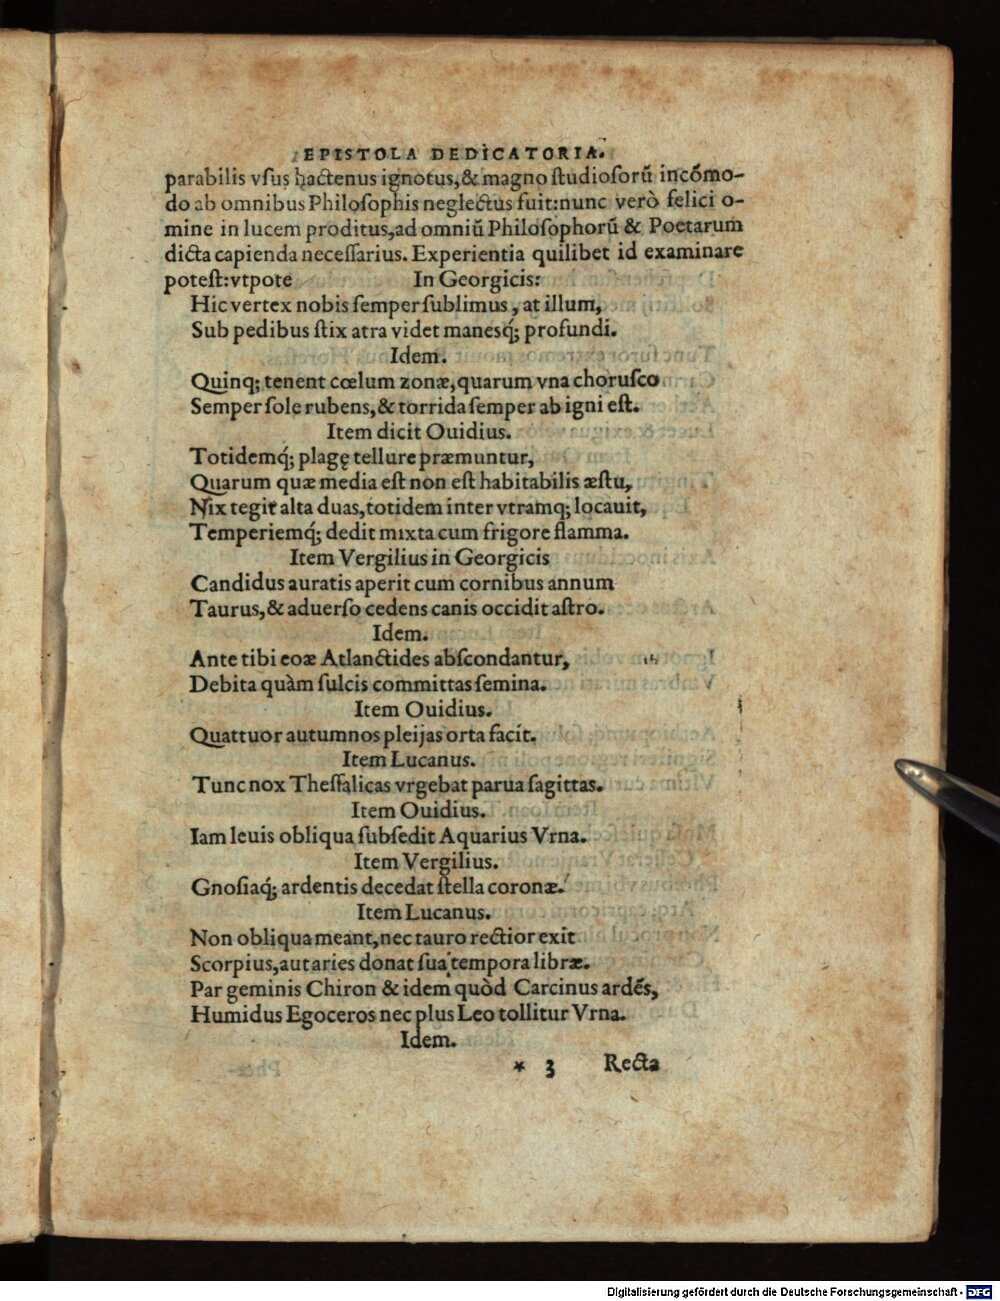 EPISTOLA DEDICATORIA.
parabilis vſus hactenus ignotus,& magno ſtudioſorũ incõmo-
do ab omnibus Philoſophis neglectus fuit:nunc verò felici o-
mine in lucem proditus,ad omniũ Philoſophorũ & Poetarum
dicta capienda neceſſarius. Experientia quilibet id examinare
poteſt:vtpote In Georgicis:
Hic vertex nobis ſemper ſublimus, at illum,
Sub pedibus ſtix atra videt manesq́; profundi.
Idem.
Quinq; tenent cœlum zonæ,quarum vna choruſco
Semper ſole rubens,& torrida ſemper ab igni eſt.
Item dicit Ouidius.
Totidemq́; plagę tellure præmuntur,
Quarum quæ media eſt non eſt habitabilis æſtu,
Nix tegit alta duas,totidem inter vtramq; locauit,
Temperiemq́; dedit mixta cum frigore flamma.
Item Vergilius in Georgicis
Candidus auratis aperit cum cornibus annum
Taurus,& aduerſo cedens canis occidit aſtro.
Idem.
Ante tibi eoæ Atlanctides abſcondantur,
Debita quàm ſulcis committas ſemina.
Item Ouidius.
Quattuor autumnos pleijas orta facit.
Item Lucanus.
Tunc nox Theſſalicas vrgebat parua ſagittas.
Item Ouidius.
Iam leuis obliqua ſubſedit Aquarius Vrna.
Item Vergilius.
Gnoſiaq́; ardentis decedat ſtella coronæ.
Item Lucanus.
Non obliqua meant,nec tauro rectior exit
Scorpius,aut aries donat ſua tempora libræ.
Par geminis Chiron & idem quòd Carcinus ardẽs,
Humidus Egoceros nec plus Leo tollitur Vrna.
Idem.
* 3 Recta
Digitalisierung gefördert durch die Deutsche Forschungsgemeinschaft - DFG